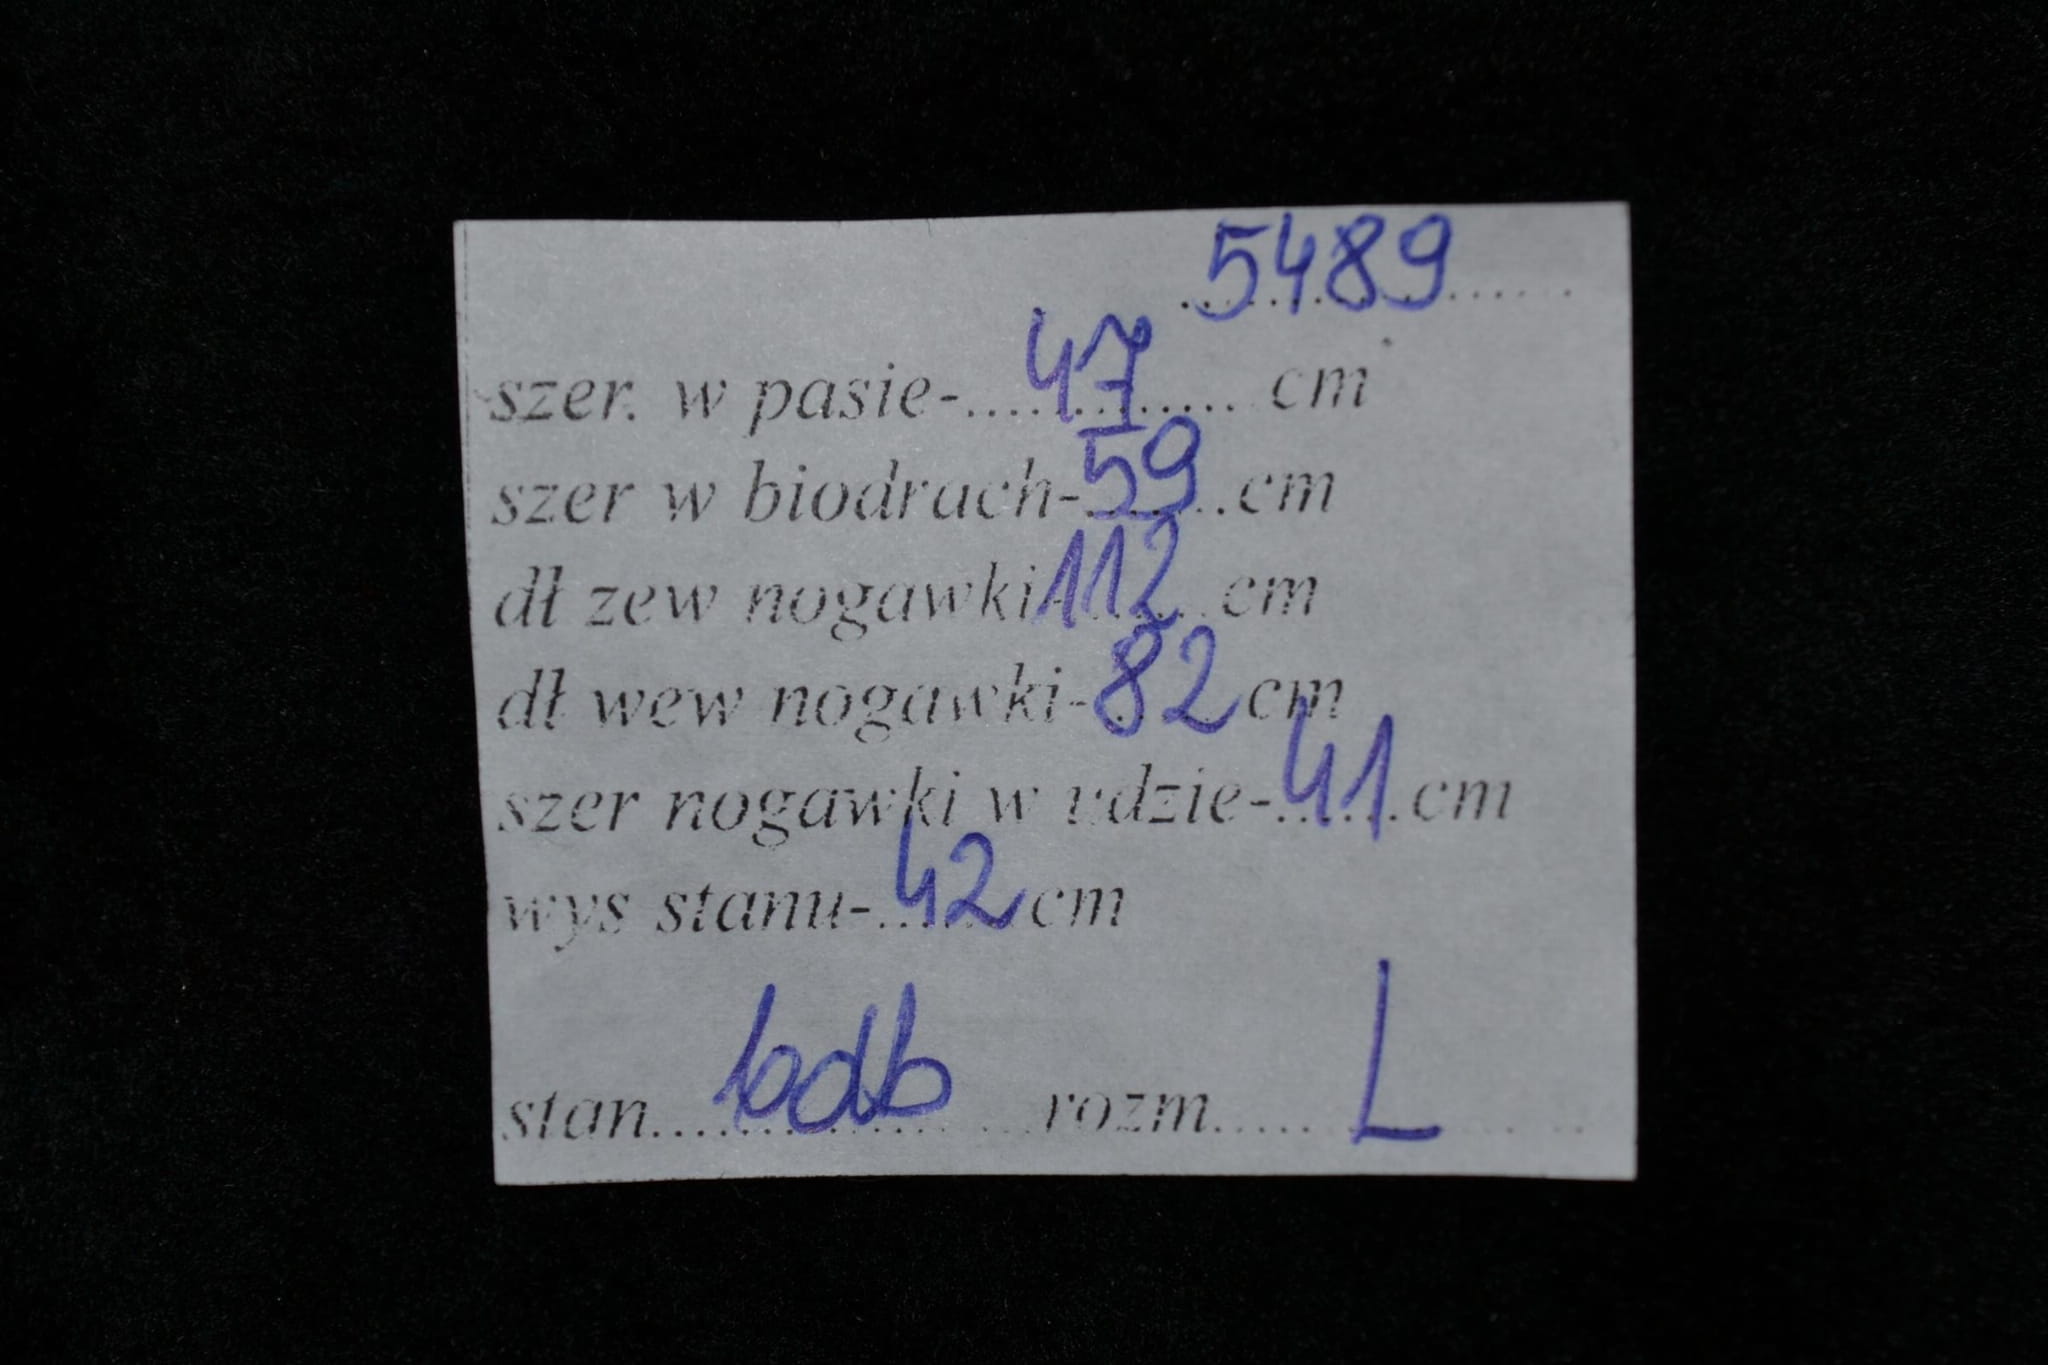 5489
szer. w pasie-47 cm
szer w biodrach-59 cm
dł zew nogawki-112 cm
dł wew nogawki-82 cm
szer nogawki w udzie-41 cm
wys stanu-42 cm
stan bdb rozm L